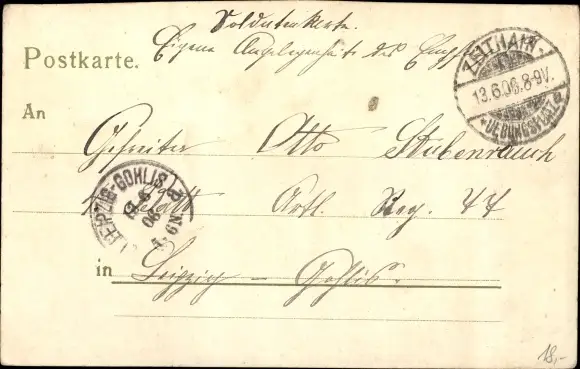 Soldatenkarte.
Postkarte.
Eigene Angelegenheit des Empf
ZEITHAIN
13.6.06.8-9V.
UEBUNGSPLATZ
An
Gefreiter Otto Stubenrauch
LEIPZIG-GOHLIS
06
Artl. Reg. 77
in Leipzig – Gohlis.
18,-